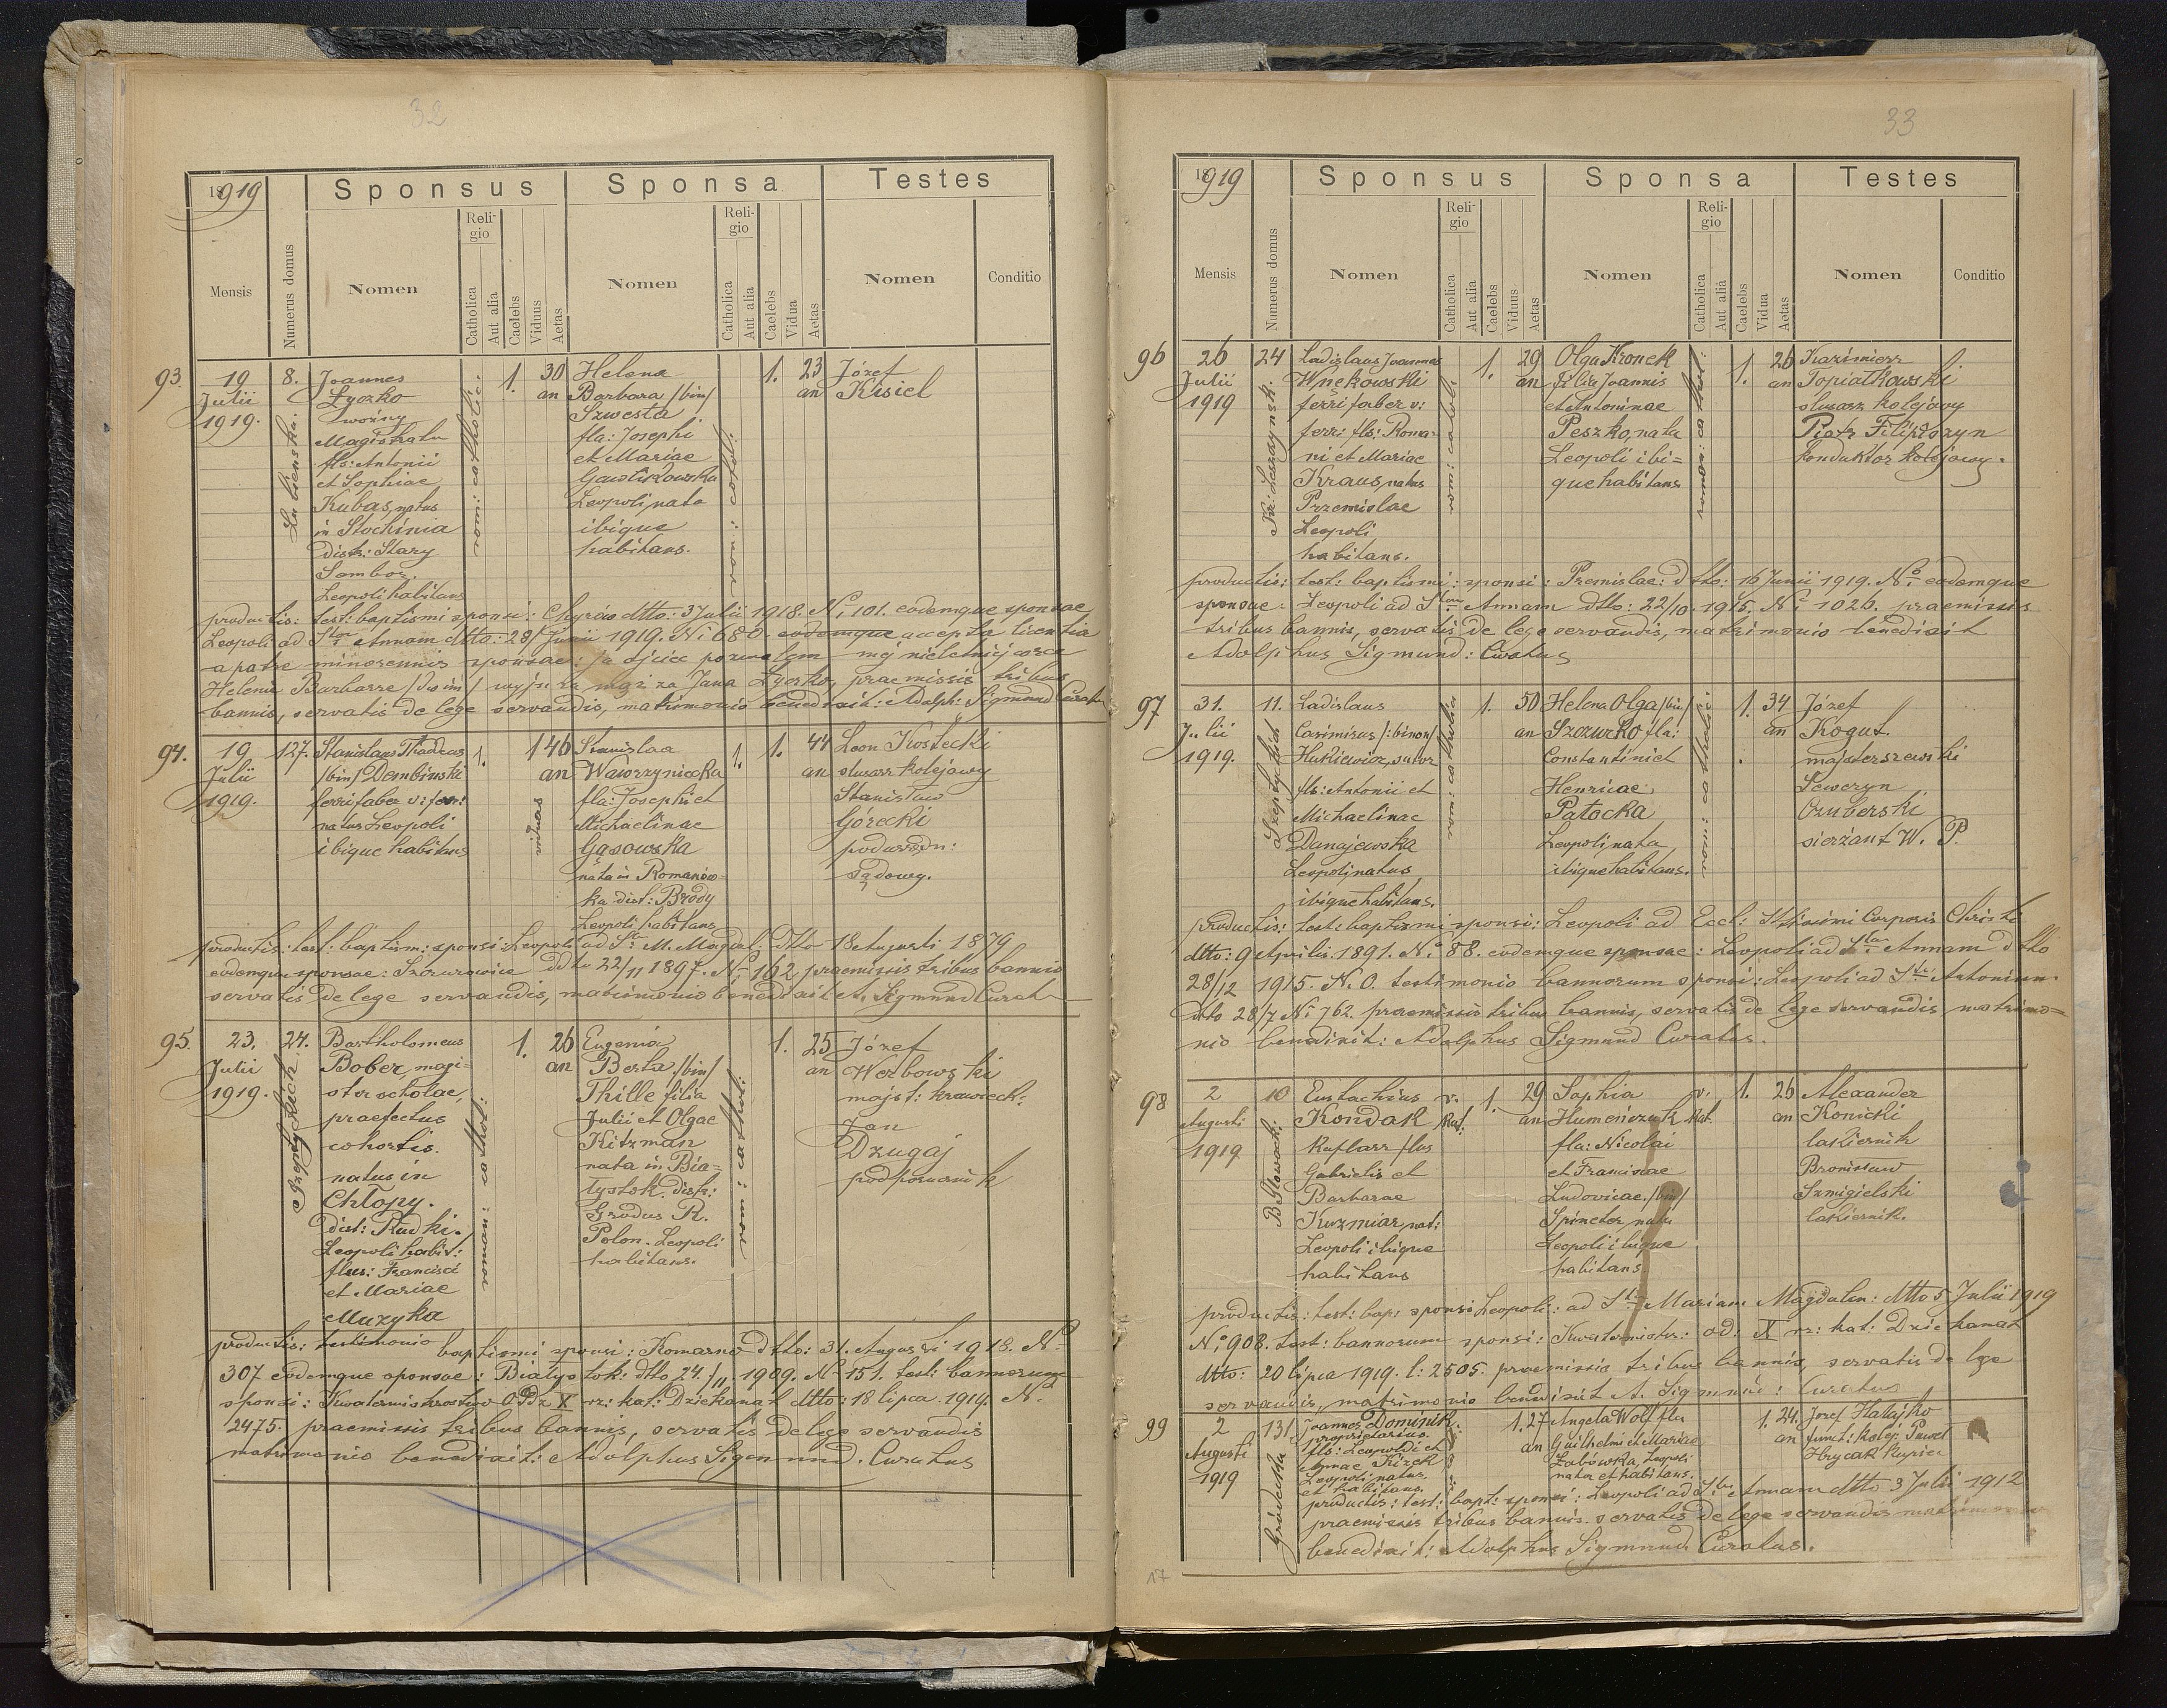 32
1919
Sponsus
Sponsa
Testes
Mensis
Numerus domus
Nomen
Religio
Catholica
Aut alia
Caelebs
Viduus
Aetas
Nomen
Religio
Catholica
Aut alia
Caelebs
Vidua
Aetas
Nomen
Conditio
93.
19
Julii
1919.
8.
Joannes
Łyczko
woźny
Magistratu
fls: Antonii
et Sophiae
Kubas, natus
in
distr: Stary
Sambor.
Leopoli habitans
rom: catholic:
1.
30
an
Helena
Barbara /bin/
Szwesta
fla: Josephi
et Mariae
Leopoli, nata
ibique
habitans.
1.
23
an
Józef
Kisiel
productis: test: baptismi sponsi: Chyrów dtto: 3 Julii 1918. No 101. eodemque sponsae
Leopoli ad Stam Annam dtto: 28/ Junii 1919. No 680. eodemque accepta licentia
a patre minorennis sponsae: ja ojciec pozwalam mej nieletniej córce
Helenie Barbarze /dwim/ wyjść za mąż za Jana Łyczko, praemissis tribus
bannis, servatis de lege servandis, matrimonio benedixit: Adolph: Sigmund Curat
94.
19
Julii
1919.
127.
Stanislaus Thadeus
/bin/ Dembinski
ferrifaber v: ferr:
natus Leopoli
ibique habitans
1.
viduus
1 46
an
Stanislaa
Wawrzyniecka
fla: Josephi et
Michaelinae
Gąsowska
nata in Romanów-
ka dist: Brody
Leopoli habitans
1.
1.
44
an
Leon Kostecki
slusarz kolejowy
Stanisław
Górecki
podurzędn:
sądowy.
productis: test: baptism: sponsi: Leopoli ad St. M. Magdal: dtto 18 Augusti 1879
eodemque sponsae: Szczurowice ddto 22/11 1897. No 162 praemissis tribus bannis
servatis de lege servandis, matrimonio benedixit A. Sigmund Curat
95.
23.
Julii
1919.
24.
Szeptyckich
Bartholomeus
Bober, magi-
ster scholae,
praefectus
cohortis.
natus in
Chłopy.
dist: Rudki.
Leopoli habit:
flus: Francisci
et Mariae
Muzyka
roman: cathol:
1.
26
an
Eugenia
Berta /bin/
Thille filia
Julii et Olgae
Kitzman
nata in Bia-
łystok. distr:
Grodus R.
Polon. Leopoli
habitans.
rom: cathol:
1.
25
an
Józef
Werbowski
majst: krawieck:
Jan
Dzugaj
podporucznik
productis: testimonio baptismi sponsi: Komarno dtto: 31. Augusti 1918. No
307 eodemque sponsae: Białystok: dtto 24./11. 1909. No 151. test: bannorum
sponsi: X rz: kat: Dziekanat dtto: 18 lipca. 1919. No
2475. praemissis tribus bannis, servatis de lege servandis
matrimonio benedixit: Adolphus Sigmund. Curatus
33
1919
Sponsus
Sponsa
Testes
Mensis
Numerus domus
Nomen
Religio
Catholica
Aut alia
Caelebs
Viduus
Aetas
Nomen
Religio
Catholica
Aut alia
Caelebs
Vidua
Aetas
Nomen
Conditio
96
26
Julii
1919
24
Ladislaus Joannes
Wnękowski
ferrifaber v:
ferr: fls: Roma-
ni et Mariae
Kraus, natus
Przemislae
Leopoli
habitans.
rom: cathol:
1.
29
an
Olga Kronek
filia Joannis
et Antoninae
Peszko, nata
Leopoli ibi=
que habitans
roman: cathol:
1.
26
an
Kazimierz
Topiatkowski
slusarz kolejowy
Piotr
konduktor kolejowy.
productis: test: baptismi: sponsi: Premislae: dtto: 16 Junii 1919. No. eodemque
sponsae: Leopoli ad Stam Annam dtto: 22/10. 1915. No 1026. praemissis
tribus bannis, servatis de lege servandis, matrimonio benedixit
Adolphus Sigmund: Curatus
97
31.
Julii
1919.
11.
Szeptyckich
Ladislaus
Casimirus /:binom/
Hukiewicz, sutor
fls: Antonii et
Michaelinae
Dunajewska
Leopoli natus,
ibique habitans.
rom: catholic
1.
50
an
Helena Olga /bin/
Szczurko fla:
Constantini et
Henricae
Patocka
Leopoli, nata,
ibique habitans.
rom: catholic
1.
34
an
Józef
Kogut.
majster szewski
Seweryn
Czuberski
sierżant W. P.
productis: test: baptismi sponsi: Leopoli ad Eccl: Corporis Christi
dtto: 9 Aprilis 1891. No 88. eodemque sponsae: Leopoli ad Stam Annam dtto
28/12 1915. N. 0. testimonio bannorum sponsi: Leopoli ad St. Antonium.
dtto 28/7 No 762. praemissis tribus bannis, servatis de lege servandis matrimo=
nio benedixit: Adolphus Sigmund Curatus.
98
2
Augusti
1919
10
Eustachius
Kondak
Kaflarz flus
Gabrielis et
Barbarae
Kuzmiar, nat:
Leopoli ibique
habitans
r.
kat:
1.
29
an
Sophia
fla: Nicolai
et Franciscae
Ludovicae /bin/
Spineter, nata
Leopoli ibique
habitans.
r.
kat.
1.
26
an
Alexander
Konicki
lakiernik
Bronisław
Szmigielski
lakiernik.
productis: test: bap: sponsi Leopoli: ad St. Mariam Magdalen: dtto 5 Julii 1919
No 908. test: bannorum sponsi: od: X rz: kat: Dziekanat
dtto: 20 lipca 1919. l: 2505. praemissis tribus bannis, servatis de lge
servandis, matrimonio benedixit A. Sigmund: Curatus
99
2
Augusti
1919
131
Gródecka
Joannes Dominik.
proprietarius.
fls: Leopoldi et
Annae Kizek
Leopoli natus.
et habitans.
1.
27
an
Angela Wolf fla
Guilhelmi et Mariae
Zabówska, Leopoli
nata et habitans.
1.
24.
an
Jozef Hałajko
funct: kolej: Paweł
Hrycak Kupiec
productis: test: bapt: sponsi: Leopoli ad St. Annam dtto 3 Julii 1912
praemissis tribus bannis. servatis de lege servandis matrimonio
benedixit: Adolphus Sigmund Curatus.
17